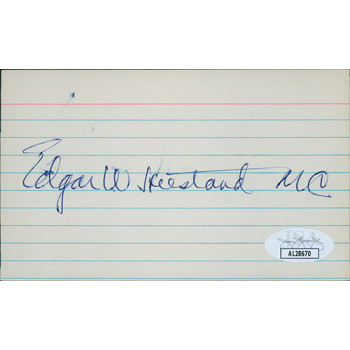 Edgar W Hiestand MC
JSA
AL28670